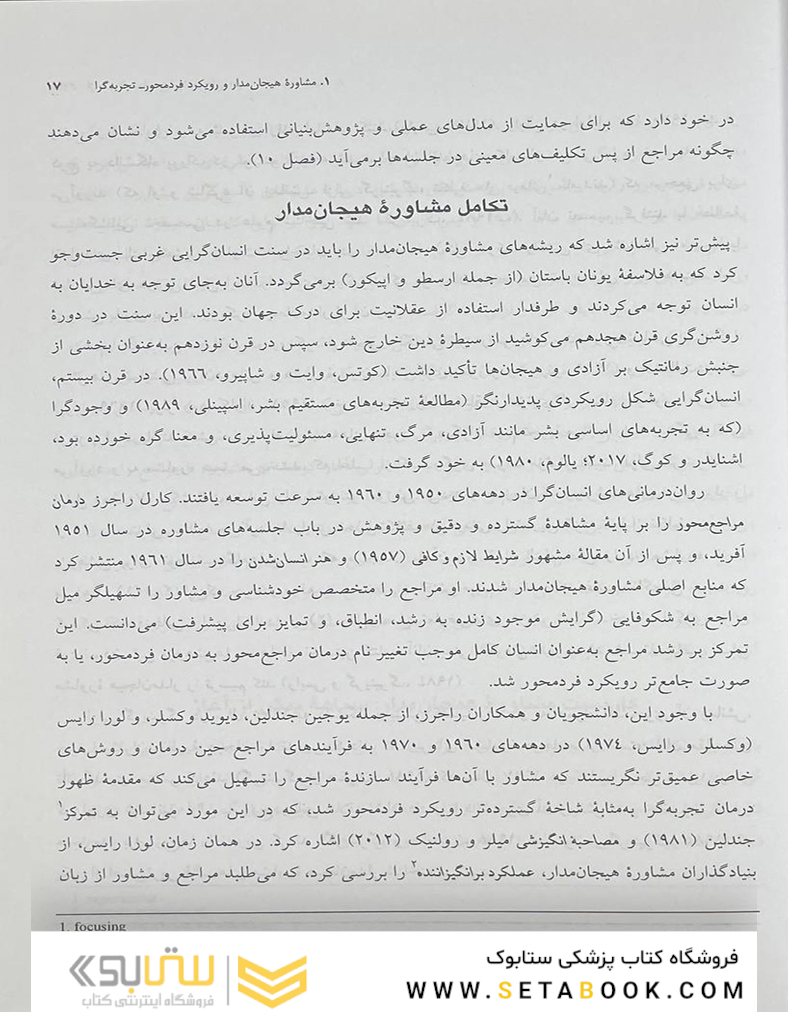 ۱. مشاورهٔ هیجان‌مدار و رویکرد فردمحور_ تجربه‌گرا ۱۷
در خود دارد که برای حمایت از مدل‌های عملی و پژوهش‌بنیانی استفاده می‌شود و نشان می‌دهند
چگونه مراجع از پس تکلیف‌های معینی در جلسه‌ها برمی‌آید (فصل ۱۰).
تکامل مشاورهٔ هیجان‌مدار
پیش‌تر نیز اشاره شد که ریشه‌های مشاورهٔ هیجان‌مدار را باید در سنت انسان‌گرایی غربی جست‌وجو
کرد که به فلاسفهٔ یونان باستان (از جمله ارسطو و اپیکور) برمی‌گردد. آنان به‌جای توجه به خدایان به
انسان توجه می‌کردند و طرفدار استفاده از عقلانیت برای درک جهان بودند. این سنت در دورهٔ
روشن‌گری قرن هجدهم می‌کوشید از سیطرهٔ دین خارج شود، سپس در قرن نوزدهم به‌عنوان بخشی از
جنبش رمانتیک بر آزادی و هیجان‌ها تأکید داشت (کوتس، وایت و شاپیرو، ۱۹۶۶). در قرن بیستم،
انسان‌گرایی شکل رویکردی پدیدارنگر (مطالعهٔ تجربه‌های مستقیم بشر، اسپینلی، ۱۹۸۹) و وجودگرا
(که به تجربه‌های اساسی بشر مانند آزادی، مرگ، تنهایی، مسئولیت‌پذیری، و معنا گره خورده بود،
اشنایدر و کوگ، ۲۰۱۷؛ یالوم، ۱۹۸۰) به خود گرفت.
روان‌درمانی‌های انسان‌گرا در دهه‌های ۱۹۵۰ و ۱۹۶۰ به سرعت توسعه یافتند. کارل راجرز درمان
مراجع‌محور را بر پایهٔ مشاهدهٔ گسترده و دقیق و پژوهش در باب جلسه‌های مشاوره در سال ۱۹۵۱
آفرید، و پس از آن مقالهٔ مشهور شرایط لازم و کافی (۱۹۵۷) و هنر انسان‌شدن را در سال ۱۹۶۱ منتشر کرد
که منابع اصلی مشاورهٔ هیجان‌مدار شدند. او مراجع را متخصص خودشناسی و مشاور را تسهیلگر میل
مراجع به شکوفایی (گرایش موجود زنده به رشد، انطباق، و تمایز برای پیشرفت) می‌دانست. این
تمرکز بر رشد مراجع به‌عنوان انسان کامل موجب تغییر نام درمان مراجع‌محور به درمان فردمحور، یا به
صورت جامع‌تر رویکرد فردمحور شد.
با وجود این، دانشجویان و همکاران راجرز، از جمله یوجین جندلین، دیوید وکسلر، و لورا رایس
(وکسلر و رایس، ۱۹۷۴) در دهه‌های ۱۹۶۰ و ۱۹۷۰ به فرآیندهای مراجع حین درمان و روش‌های
خاصی عمیق‌تر نگریستند که مشاور با آن‌ها فرآیند سازندهٔ مراجع را تسهیل می‌کند که مقدمهٔ ظهور
درمان تجربه‌گرا به‌مثابهٔ شاخهٔ گسترده‌تر رویکرد فردمحور شد، که در این مورد می‌توان به تمرکز۱
جندلین (۱۹۸۱) و مصاحبهٔ انگیزشی میلر و رولنیک (۲۰۱۲) اشاره کرد. در همان زمان، لورا رایس، از
بنیادگذاران مشاورهٔ هیجان‌مدار، عملکرد برانگیزاننده۲ را بررسی کرد، که می‌طلبد مراجع و مشاور از زبان
1. focusing
فروشگاه کتاب پزشکی ستابوک
WWW.SETABOOK.COM
ستابوک
فروشگاه اینترنتی کتاب